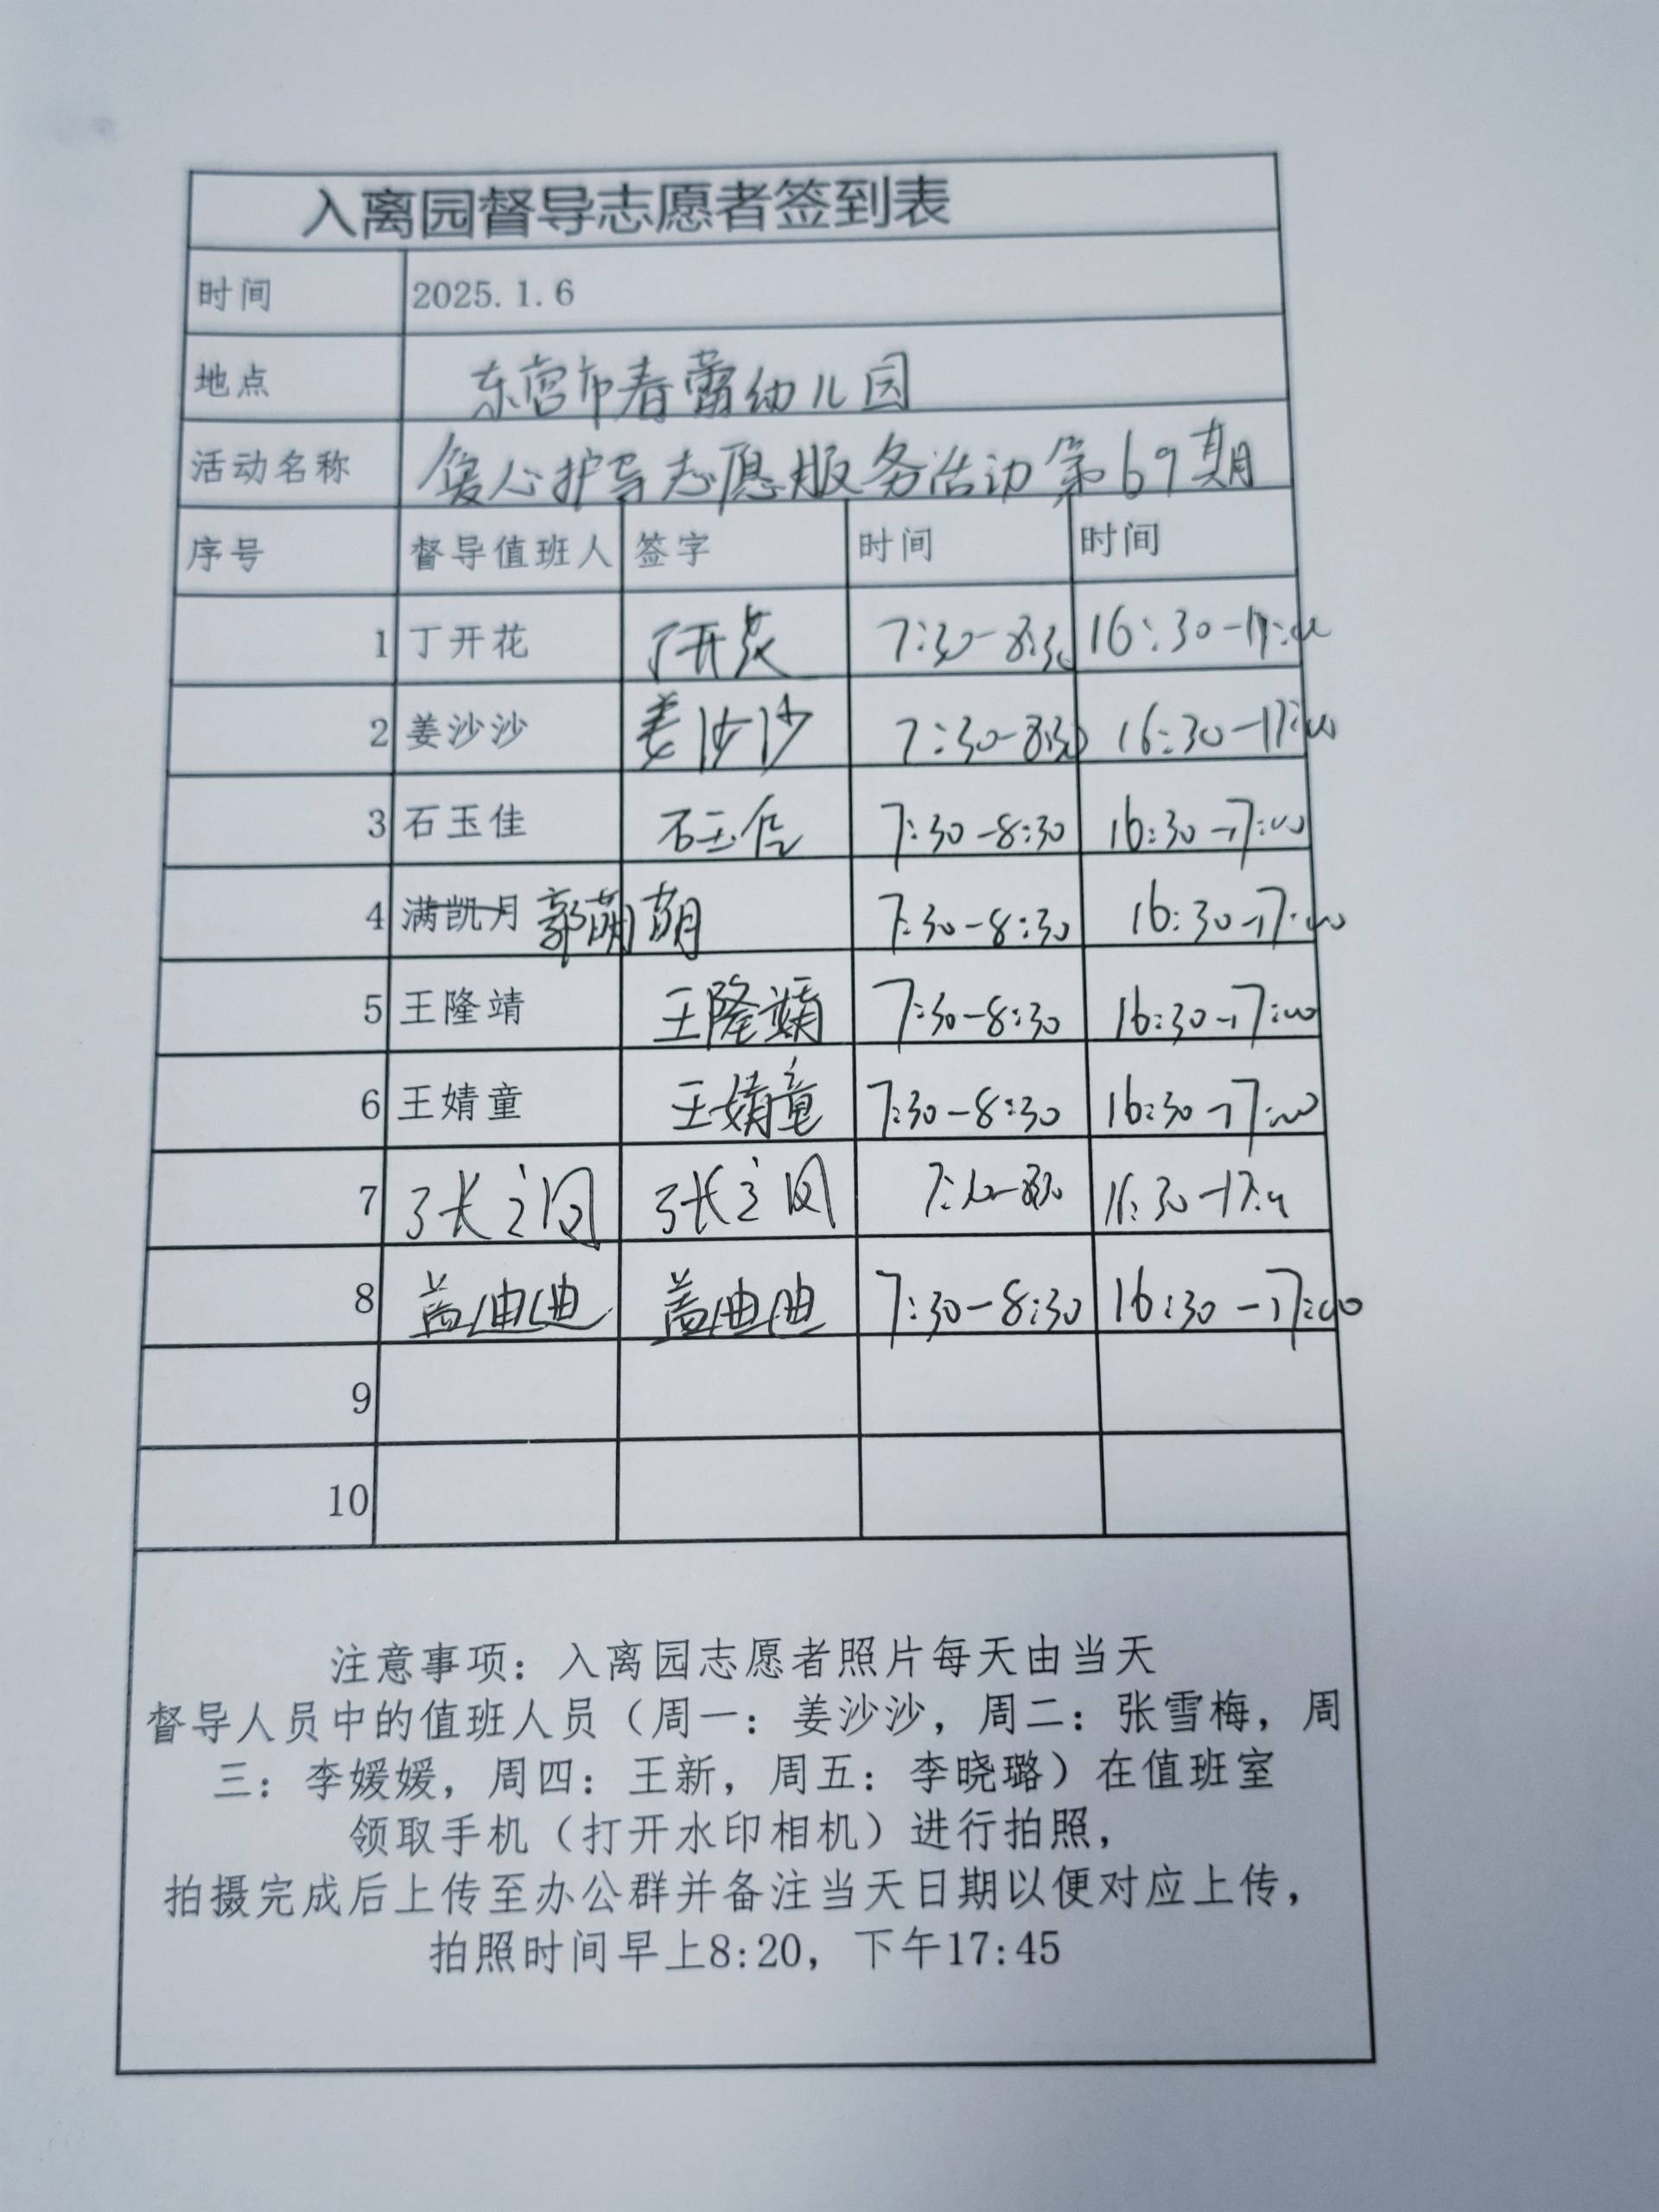 入离园督导志愿者签到表
时间 2025.1.6
地点 东营市春蕾幼儿园
活动名称 爱心护导志愿服务活动第69期
序号 督导值班人 签字 时间 时间
1 丁开花 丁开花 7:30-8:30 16:30-17:00
2 姜沙沙 姜沙沙 7:30-8:30 16:30-17:00
3 石玉佳 石玉佳 7:30-8:30 16:30-17:00
4 满凯月 郭萌萌 7:30-8:30 16:30-17:00
5 王隆靖 王隆靖 7:30-8:30 16:30-17:00
6 王婧童 王婧童 7:30-8:30 16:30-17:00
7 张 张 16:30-17:00
8 盖迪迪 盖迪迪 7:30-8:30 16:30-17:00
9
10
注意事项：入离园志愿者照片每天由当天
督导人员中的值班人员（周一：姜沙沙，周二：张雪梅，周
三：李媛媛，周四：王新，周五：李晓璐）在值班室
领取手机（打开水印相机）进行拍照，
拍摄完成后上传至办公群并备注当天日期以便对应上传，
拍照时间早上8:20，下午17:45